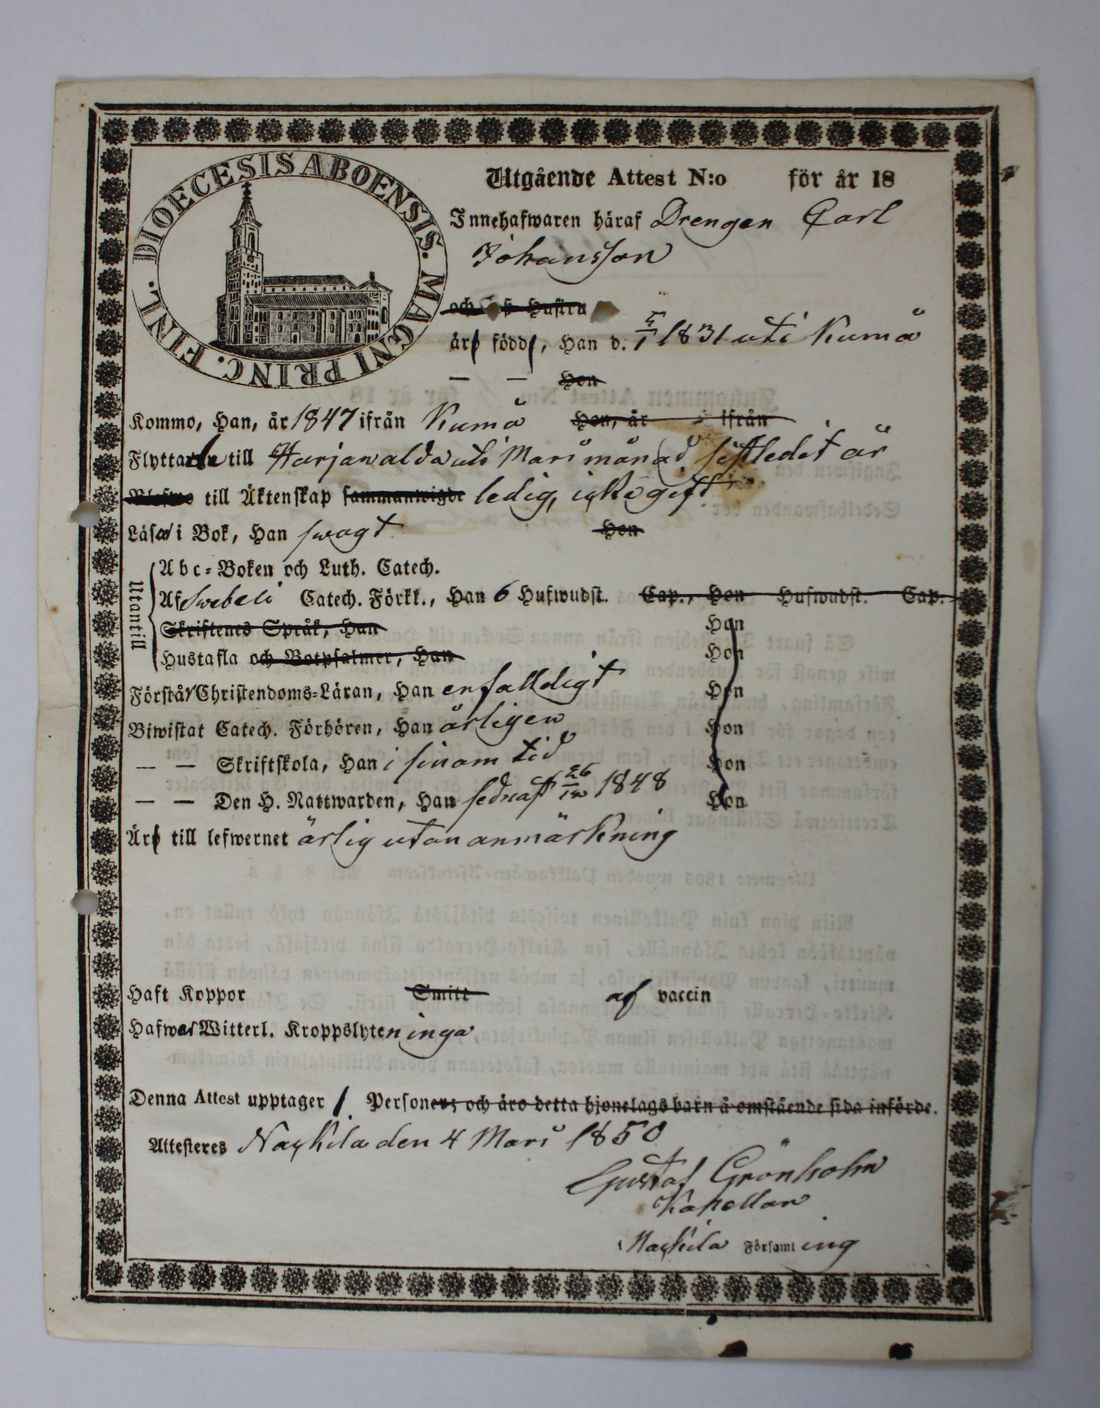 DIOECESIS ABOENSIS. MAGNI PRINC. FINL.
Utgående Attest N:o för år 18
Innehafwaren häraf Drengen Carl
Johansson
och Hustru
är född, Han d. 5/1 1831 uti Kumo
— — Hon
Kommo, Han, år 1847 ifrån Kumo Hon, år ifrån
Flyttande till Harjawalda uti Mars månad sistledit är
till Äktenskap sammanwigde ledig, icke gift
Läsa i Bok, Han swagt Hon
Utantill
Abc-Boken och Luth. Catech.
Af Swebeli Catech. Förkl., Han 6 Hufwudst. Cap., Hon Hufwudst. Cap.
Skriftenes Språk, Han Hon
Hustafla och Botpsalmer, Han Hon
Förstår Christendoms-Läran, Han enfalldigt Hon
Biwistat Catech. Förhören, Han årligen Hon
— — Skriftskola, Han i sinom tid Hon
— — Den H. Nattwarden, Han sednast 26/12 1848 Hon
Är till lefwernet ärlig utan anmärkning
Haft Koppor Smitt af vaccin
Hafwer Witterl. Kroppslyten inga
Denna Attest upptager 1. Personer; och äro detta hjonelags barn å omstående sida införde.
Attesteres Nackila den 4 Mars 1850
Gustaf Grönholm
Kapellan
Nackila Församling